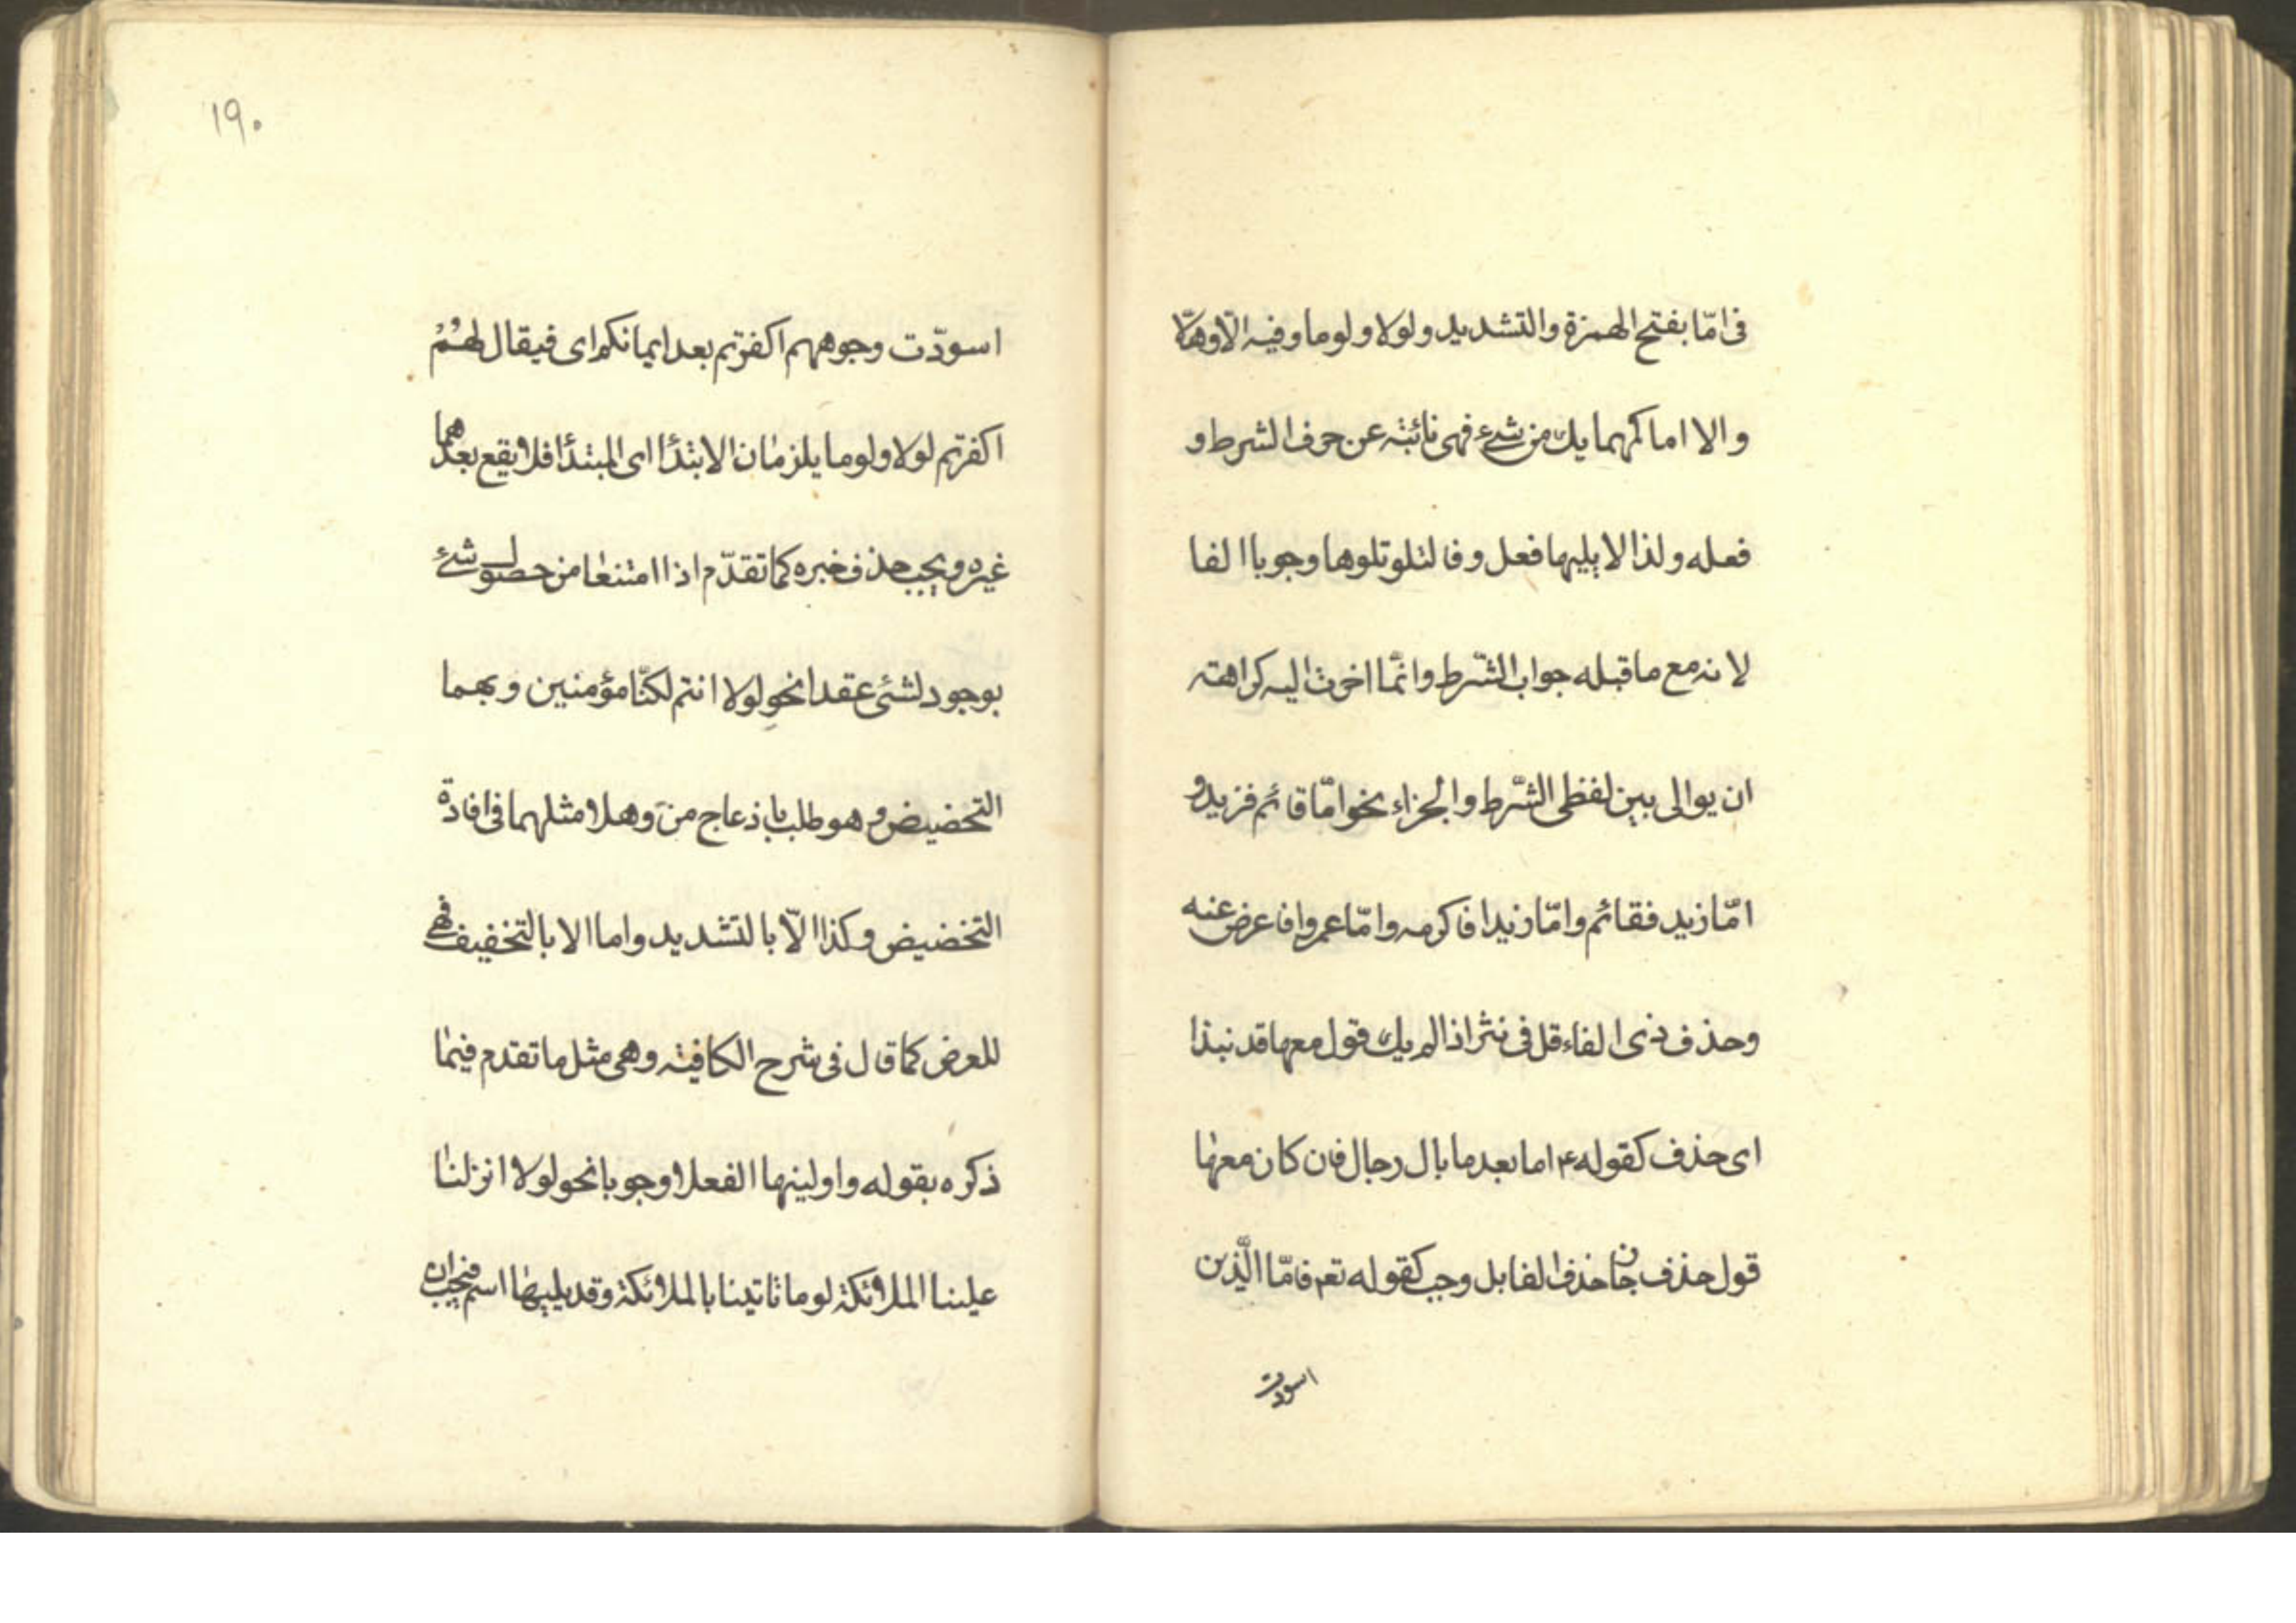 فی امّا بفتح الهمزة والتشدید ولولا ولوما وفیه الّا وهلّا
والا اما کمهما یك من شیء فهی نائبته عن حرف الشرط و
فعله ولذا لا یلیها فعل وفا لتلو تلوها وجوبا الفا
لانه مع ما قبله جواب الشّرط وانّما اخرت الیه کراهته
ان یوالی بین لفظی الشّرط والجزاء نحو امّا قائم فزید و
امّا زید فقائم وامّا زیدا فاکرمه وامّا عمروا فاعرض عنه
وحذف ذی الفاء قل فی نثر اذا لم یك قول معها قد نبذا
ای حذف کقوله ۴ اما بعد ما بال رجال فان کان معها
قول حذف جاز حذف الفا بل وجب کقوله تعم فامّا الّذین
اسودت
۱۹۰
اسودّت وجوههم اکفرتم بعد ایمانکم ای فیقال لهم
اکفرتم لولا ولوما یلزمان الابتدأ ای المبتدأ فلا یقع بعدهما
غیره ویجب حذف خبره کما تقدّم اذا امتنعا من حصول شیء
بوجود لشیء عقدا نحو لولا انتم لکنّا مؤمنین وبهما
التحضیض وهو طلب باذعاج من وهلا مثلهما فی افادة
التخضیض وکذا الّا بالتشدید واما الا بالتخفیف فهی
للعرض کما قال فی شرح الکافیته وهی مثل ما تقدم فیما
ذکره بقوله واولینها الفعلا وجوبا نحو لولا انزلنا
علینا الملائکة لوما تاتینا بالملائکة وقد یلیها اسم فیجب ان